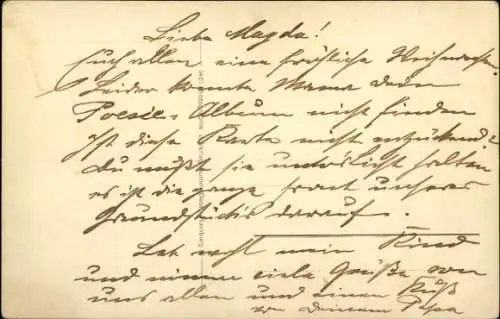 Liebe Magda!
Euch allen eine fröhliche Weihnachten
Leider konnte Mama dein
Poesie-Album nicht finden
Ist diese Karte nicht entzückend?
Du mußt sie halten
es ist die ganze Front unseres
Grundstücks darauf.
Leb wohl mein Kind
und nimm viele Grüße von
uns allen und einen Kuß
von deinem Papa